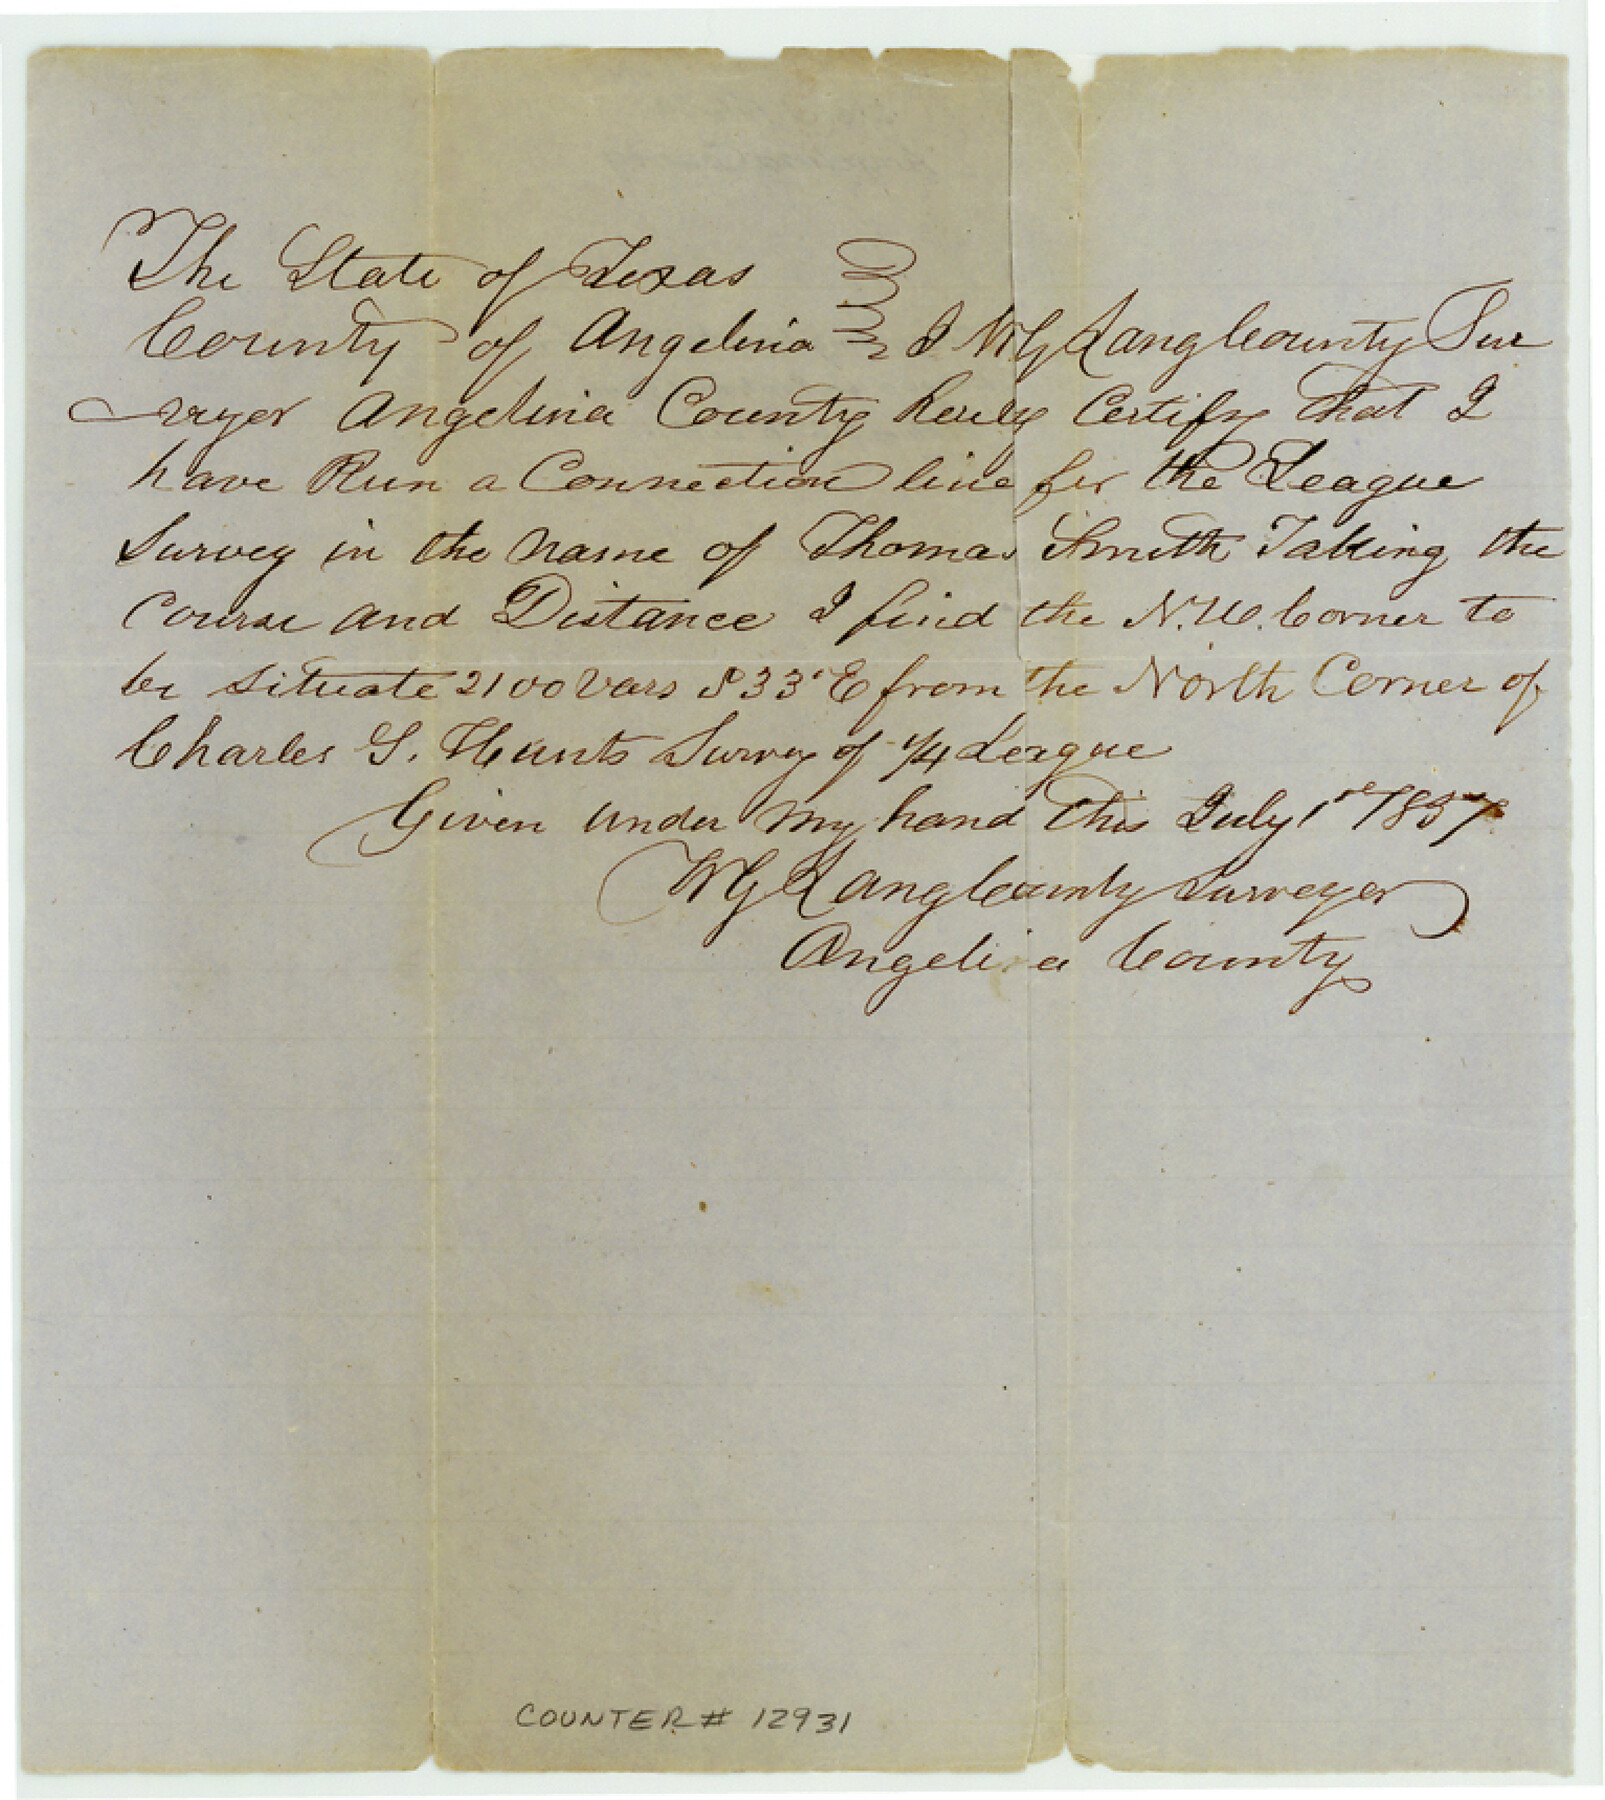 The State of Texas
County of Angelina I WG Lang County Sur
veyer Angelina County hereby Certify that I
have Run a Connection line for the League
Survey in the name of Thomas Smith Taking the
Course and Distance I find the N.W. Corner to
be situate 2100 Vars S 33° E from the North Corner of
Charles G. Hunts Survey of 1/4 League
Given under my hand this July 1st 1857
WG Lang County Surveyer
Angelina County
COUNTER # 12931